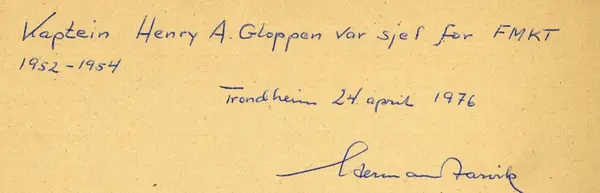 Kaptein Henry A. Gloppen var sjef for FMKT
1952-1954
Trondheim 24. april 1976